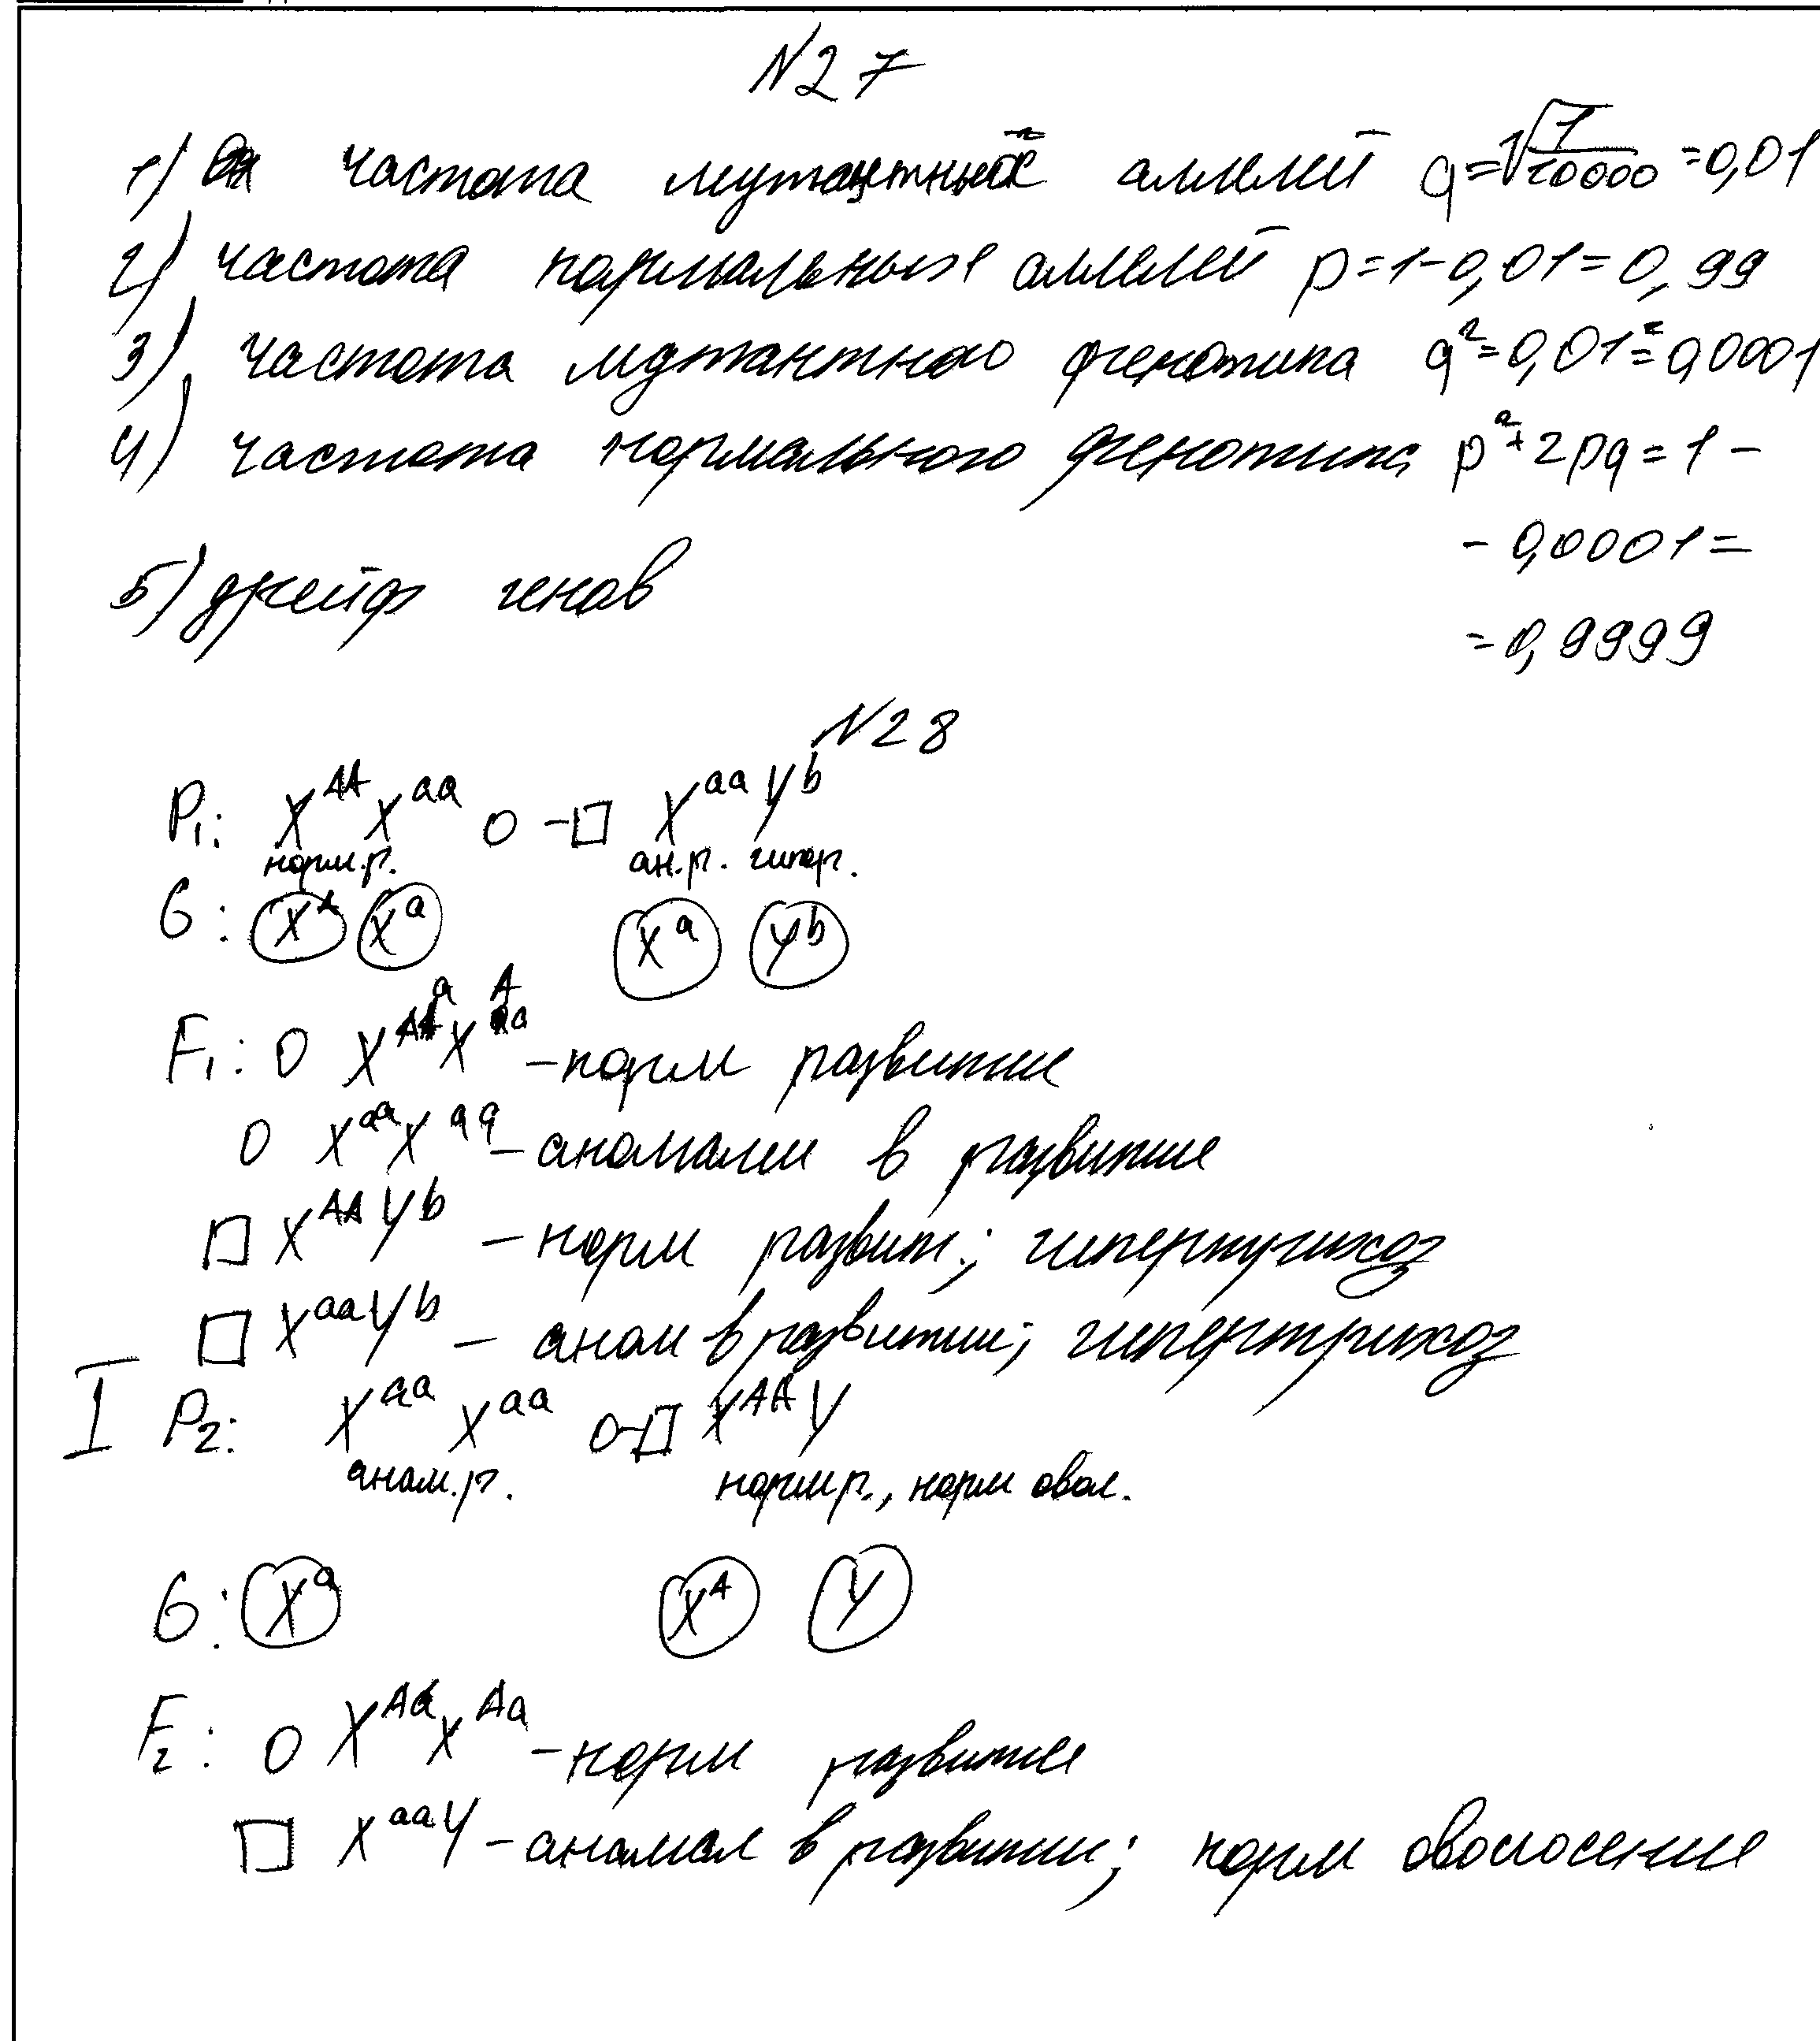 N27
1) частота мутантных аллелей q=√1/10000=0,01
2) частота нормальных аллелей p=1-0,01=0,99
3) частота мутантного фенотипа q²=0,01²=0,0001
4) частота нормального фенотипа p²+2pq=1-
-0,0001=
5) дрейф генов
=0,9999
N28
P₁: X^AA X^aa O-□ X^aa Y^b
норм.р. ан.р. гипер.
G: X^A X^a X^a Y^b
F₁: O X^Aa X^Aa - норм развитие
O X^aa X^aa - аномалии в развитие
□ X^AA Y^b - норм развит; гипертрихоз
□ X^aa Y^b - аном в развитии; гипертрихоз
I P₂: X^aa X^aa O-□ X^AA Y
аном.р. норм р., норм овол.
G: X^a X^A Y
F₂: O X^Aa X^Aa - норм развитие
□ X^aa Y - аномал в развитии; норм оволосение